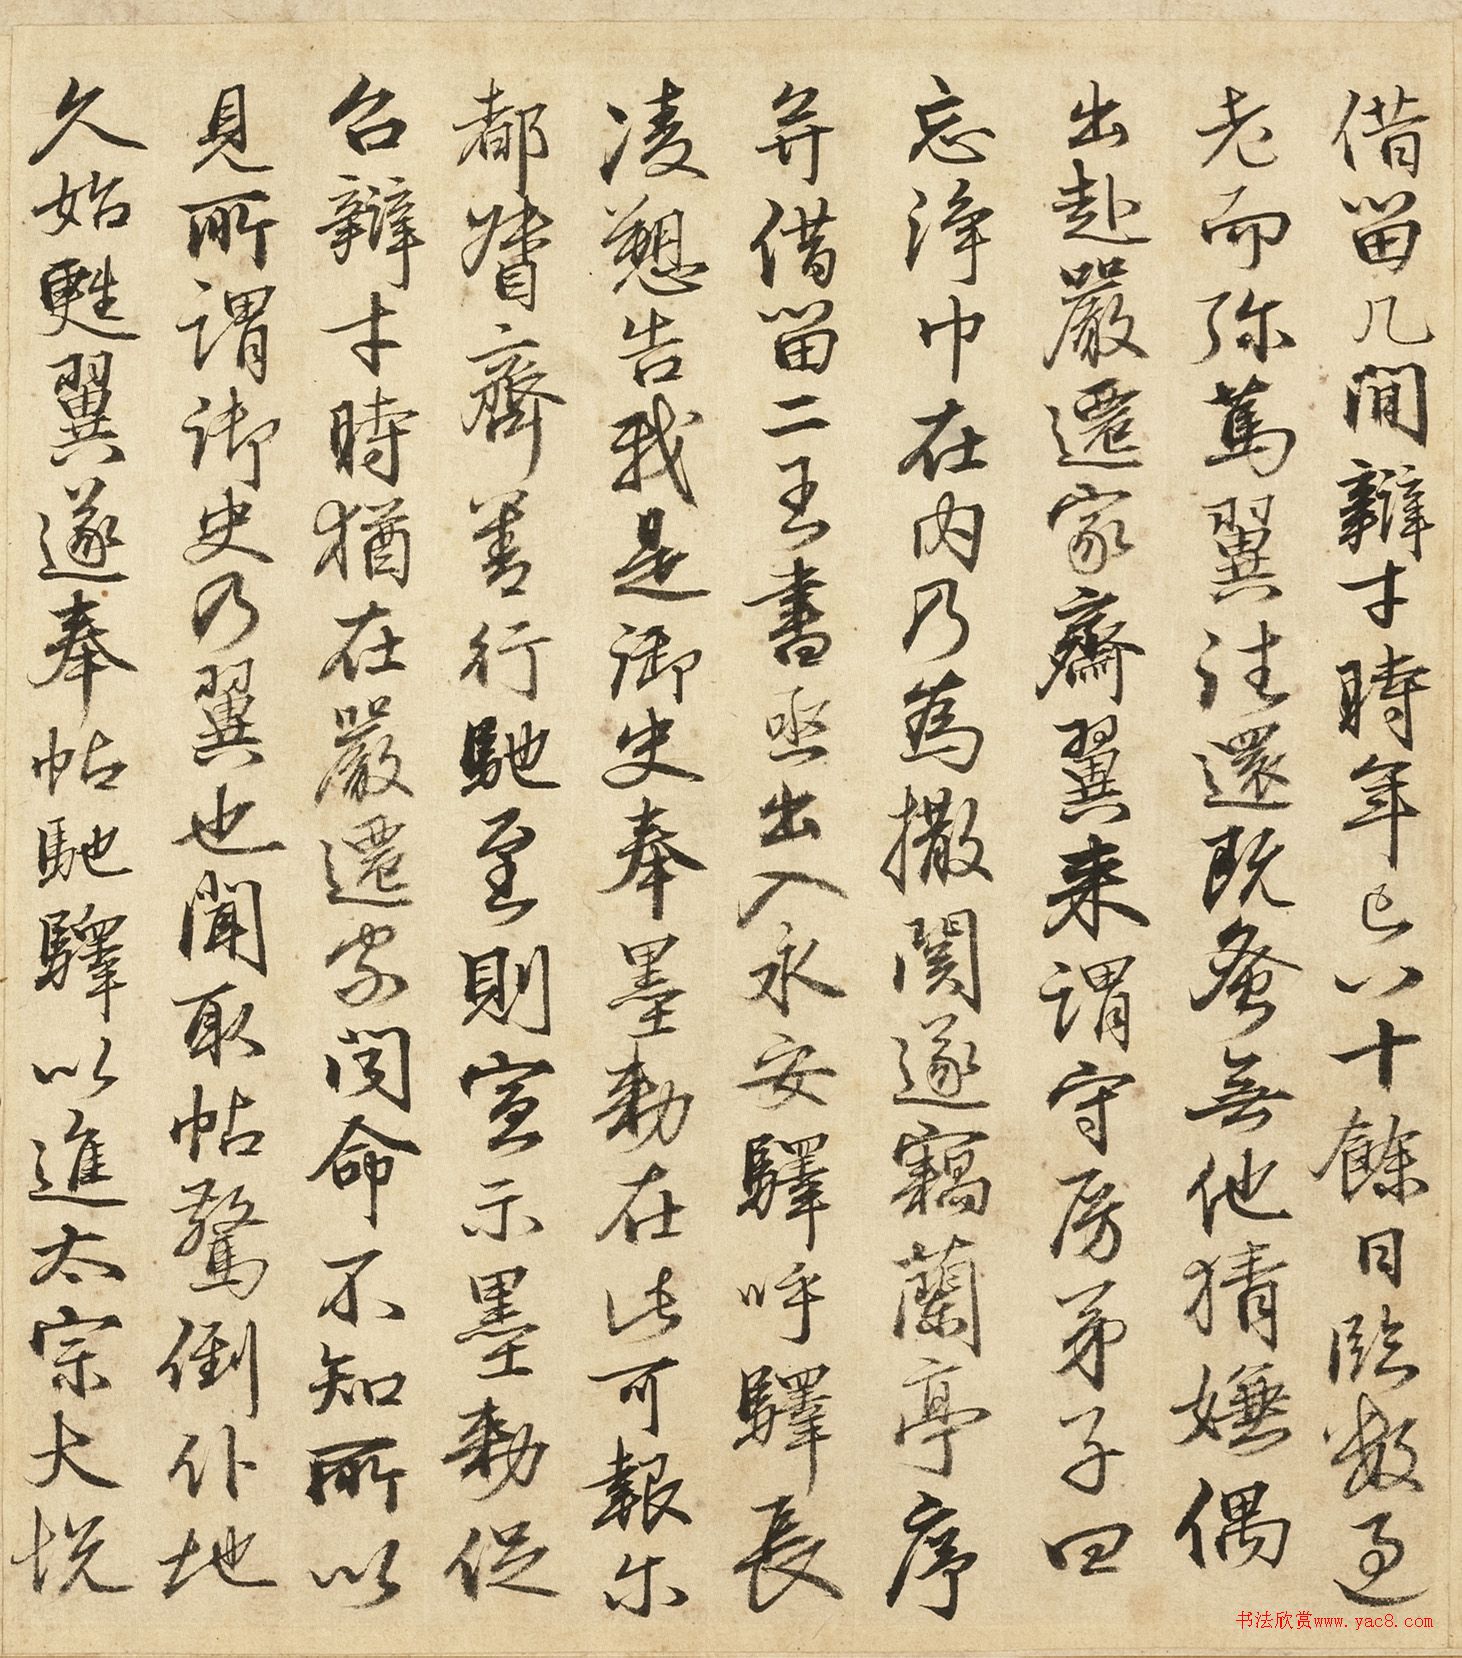 借留几間辯才時年已八十餘日臨数過
老而弥篤翼往還既密無他猜嫌偶
出赴嚴遷家齋翼来謂守房弟子曰
忘淨巾在内乃為撒関遂竊蘭亭序
并借留二王書亟出入永安驛呼驛長
凌愬告我是御史奉墨勅在此可報尔
都督齊善行馳至則宣示墨勅促
召辯才時猶在嚴遷家聞命不知所以
見所謂御史乃翼也聞取帖驚倒仆地
久始甦翼遂奉帖馳驛以進太宗大悦
书法欣赏www.yac8.com